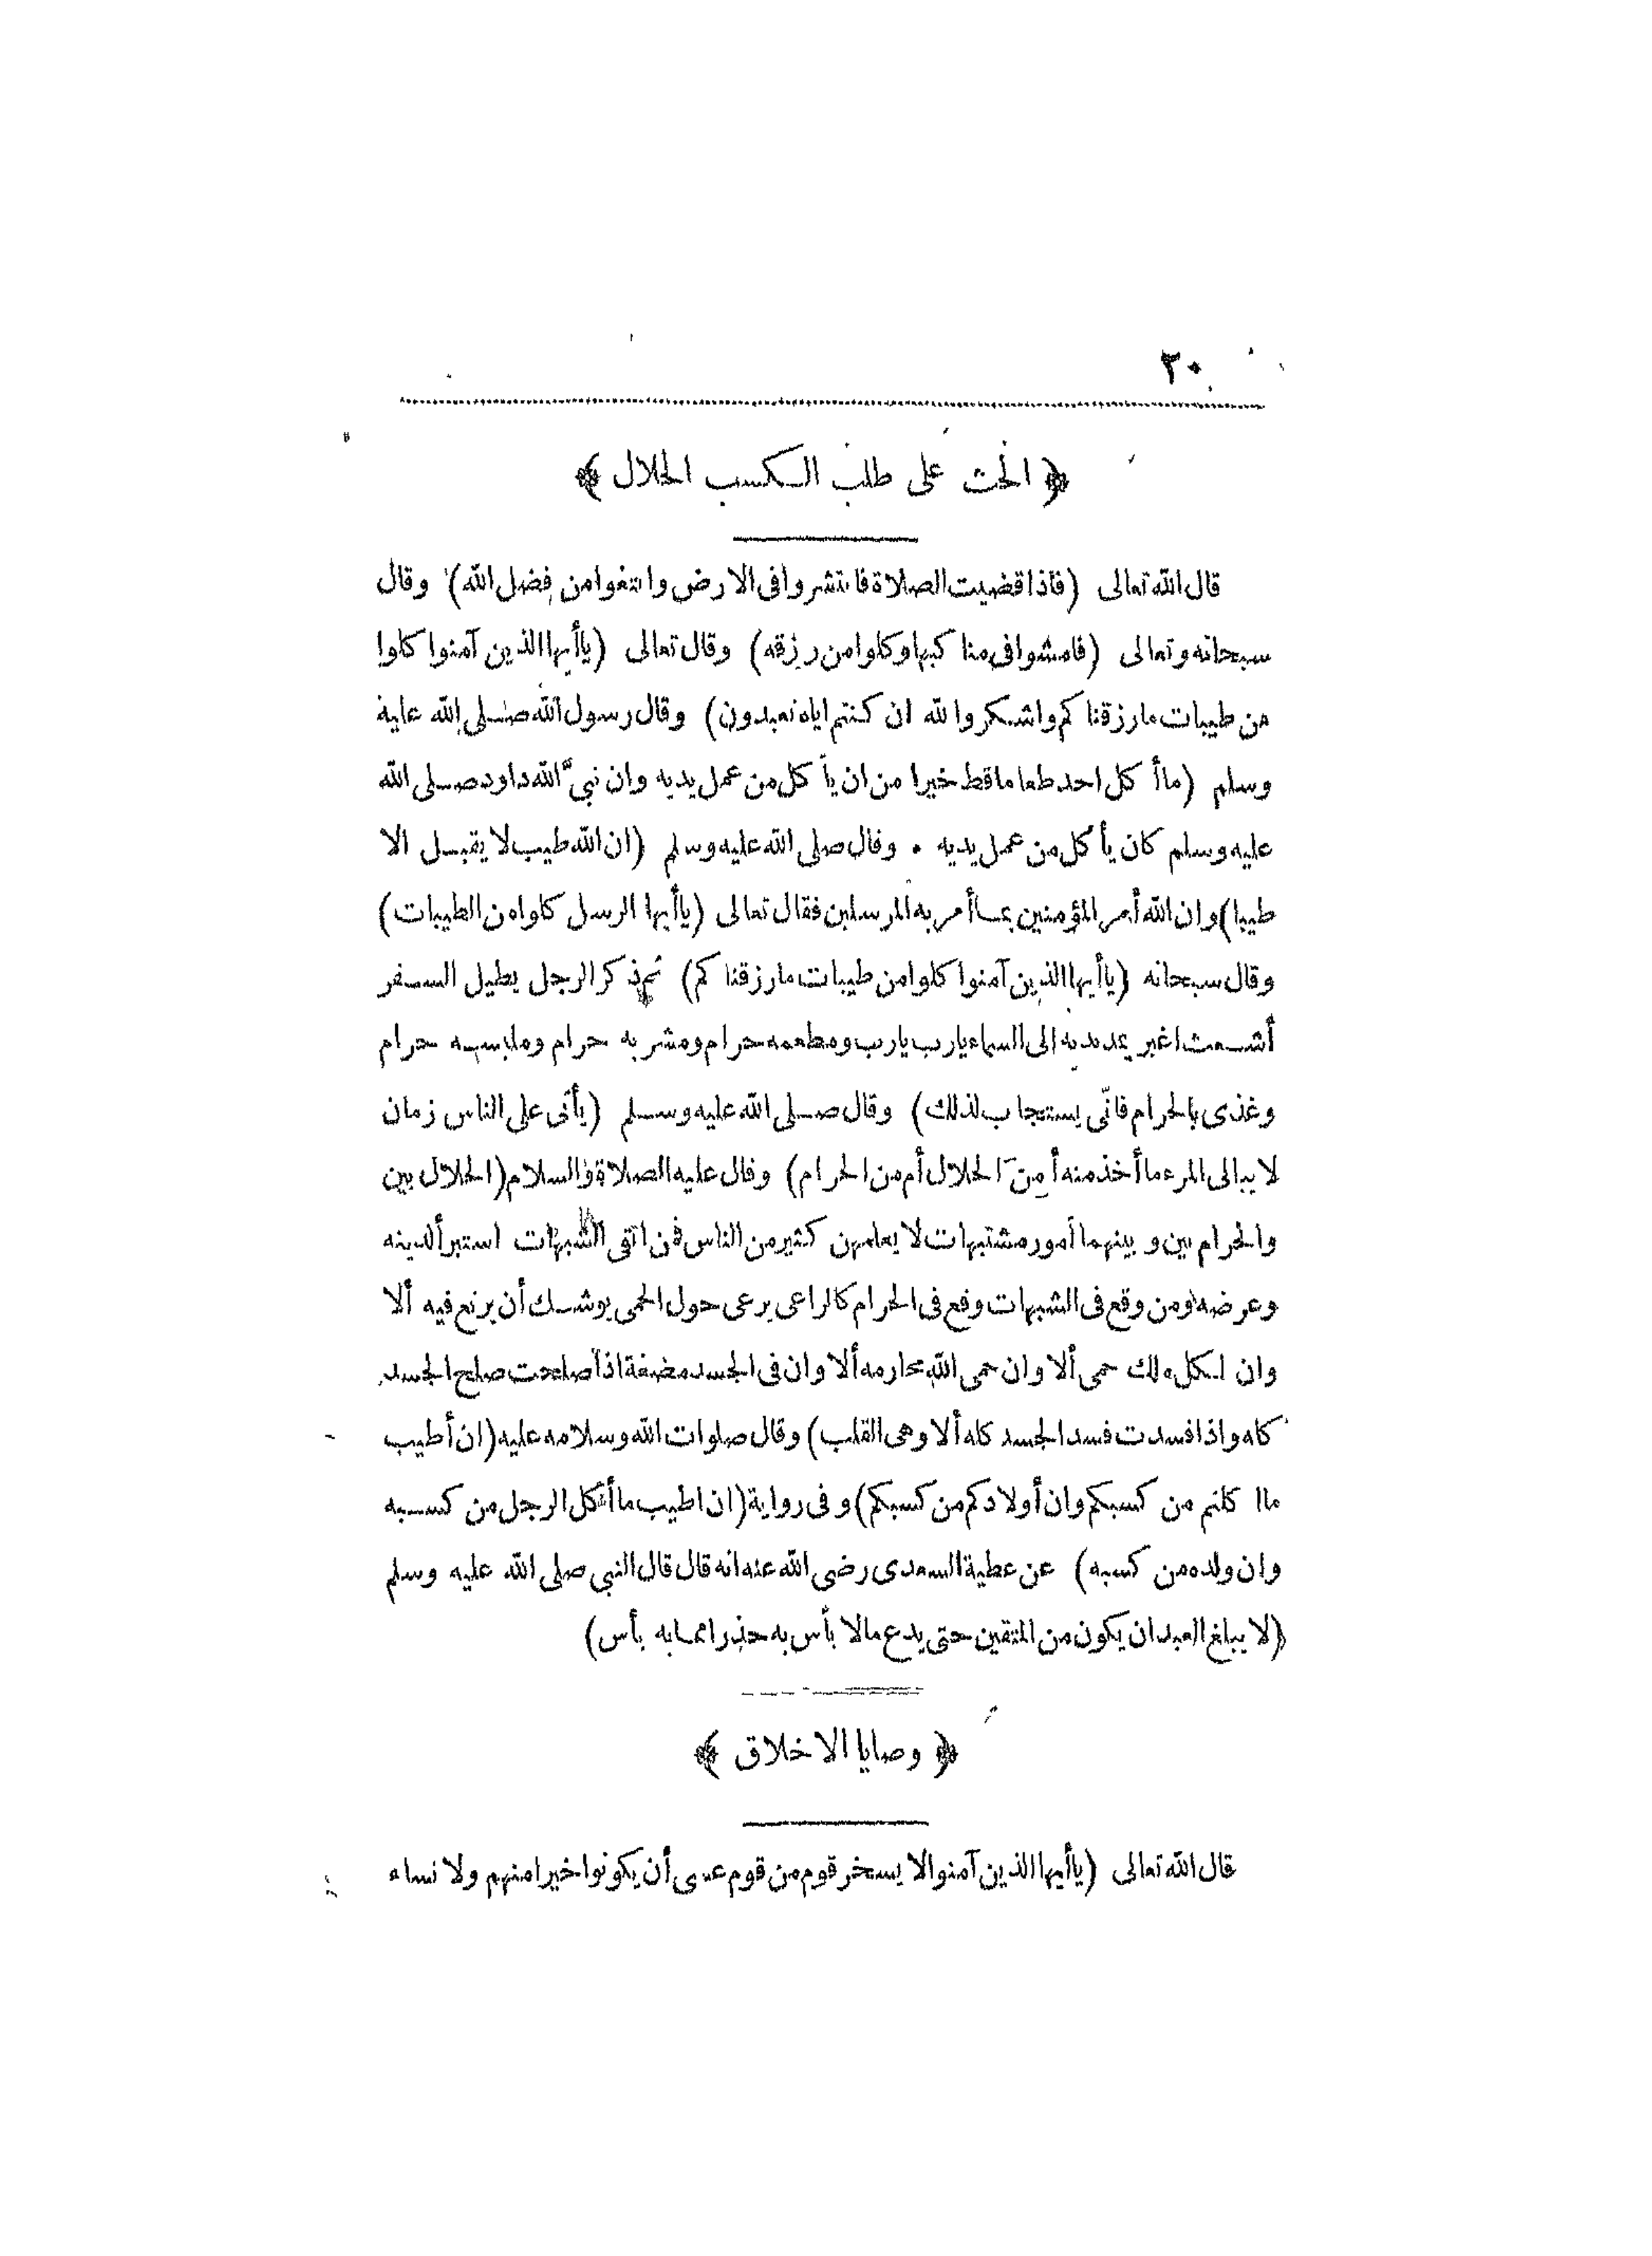 ٢٠
﴿ الحث على طلب الكسب الحلال ﴾
قال الله تعالى (فاذا قضيت الصلاة فانتشروا فى الارض وابتغوا من فضل الله) وقال
سبحانه وتعالى (فامشوا فى مناكبها وكلوا من رزقه) وقال تعالى (ياأيها الذين آمنوا كلوا
من طيبات ما رزقناكم واشكروا لله ان كنتم اياه تعبدون) وقال رسول الله صلى الله عليه
وسلم (ما أكل احد طعاما قط خيرا من ان يأكل من عمل يديه وان نبيَّ الله داود صلى الله
عليه وسلم كان يأكل من عمل يديه . وقال صلى الله عليه وسلم (ان الله طيب لا يقبل الا
طيبا) وان الله أمر المؤمنين بما أمر به المرسلين فقال تعالى (ياأيها الرسل كلوا من الطيبات)
وقال سبحانه (ياأيها الذين آمنوا كلوا من طيبات ما رزقناكم) ثم ذكر الرجل يطيل السفر
أشعث اغبر يمد يديه الى السماء يارب يارب ومطعمه حرام ومشربه حرام وملبسه حرام
وغذى بالحرام فانّى يستجاب لذلك) وقال صلى الله عليه وسلم (يأتى على الناس زمان
لا يبالى المرء ما أخذ منه أمِنَ الحلال أم من الحرام) وقال عليه الصلاة والسلام (الحلال بين
والحرام بين وبينهما أمور مشتبهات لا يعلمهن كثير من الناس فمن اتقى الشبهات استبرأ لدينه
وعرضه ومن وقع فى الشبهات وقع فى الحرام كالراعى يرعى حول الحمى يوشك أن يرتع فيه ألا
وان لكل ملك حمى ألا وان حمى الله محارمه ألا وان فى الجسد مضغة اذا صلحت صلح الجسد
كله واذا فسدت فسد الجسد كله ألا وهى القلب) وقال صلوات الله وسلامه عليه (ان أطيب
ما اكلتم من كسبكم وان أولادكم من كسبكم) وفى رواية (ان اطيب ما أكل الرجل من كسبه
وان ولده من كسبه) عن عطية السعدى رضى الله عنه انه قال قال النبي صلى الله عليه وسلم
(لا يبلغ العبد ان يكون من المتقين حتى يدع مالا بأس به حذرا مما به بأس)
﴿ وصايا الاخلاق ﴾
قال الله تعالى (ياأيها الذين آمنوا لا يسخر قوم من قوم عسى أن يكونوا خيرا منهم ولا نساء